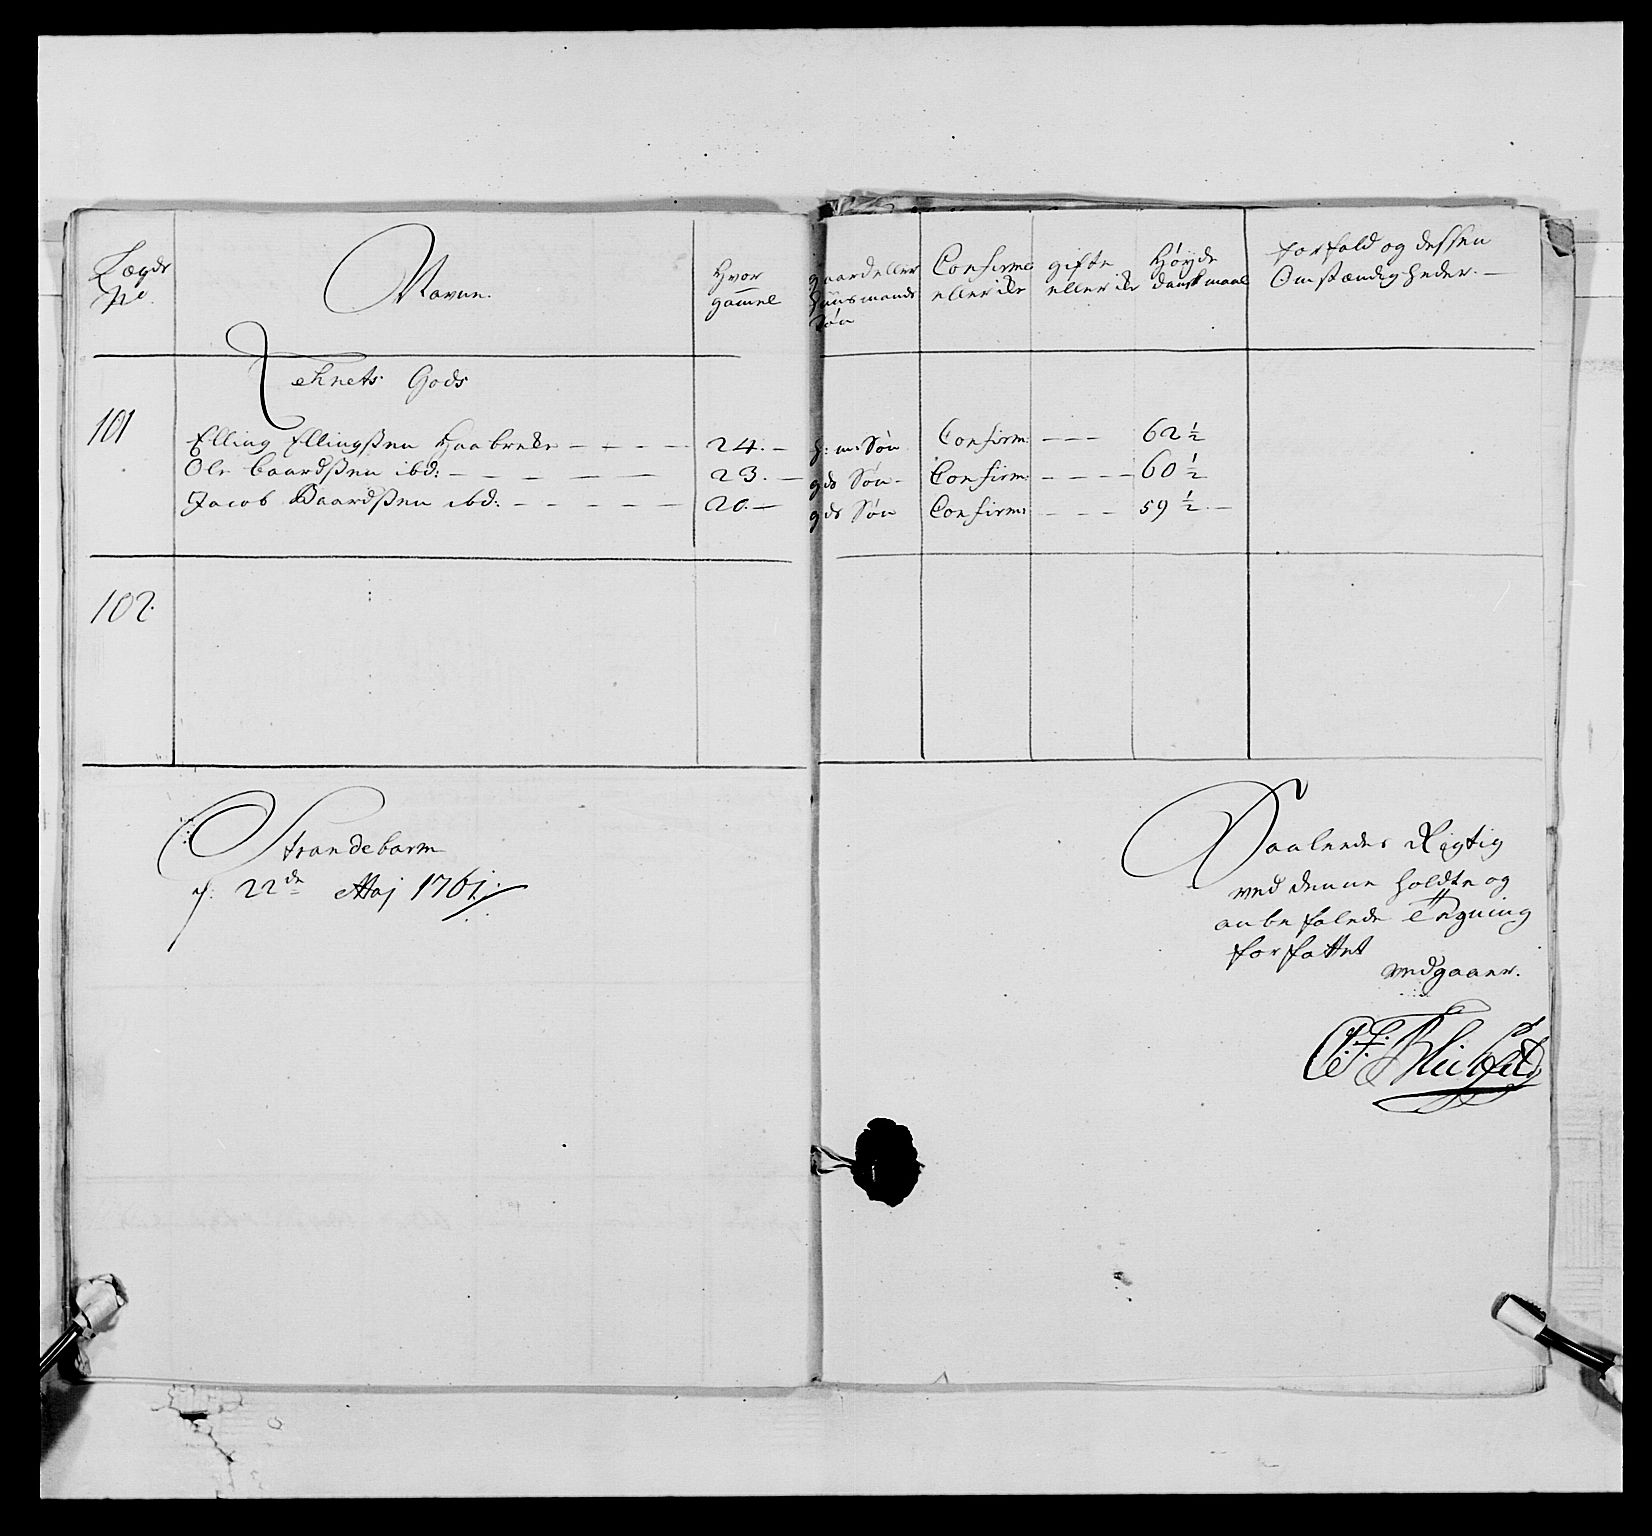 Lægds No.
Navne.
Hvor gammel
gaard eller Huusmands Søn
Confirme eller ikke
gifte eller ikke
Høyde dansk maal
forfald og dessen Omstændigheder.
Lehnets Gods
101
Elling Ellingsen Haabrekke - - - - 24. - h: m: Søn Confirm: - - - 62 ½
Ole Baardsen ibd: - - - - - 23. - gds Søn - Confirm: - - - - 60 ½
Jacob Baardsen ibd: - - - - - 20. - gds Søn Confirm: - - - 59 ½ -
102.
Strandebarm
d: 22de Maj 1761.
Saaledes Rigtig
ved denne holdte og
anbefalede Tegning
forfattet
vedgaaer.